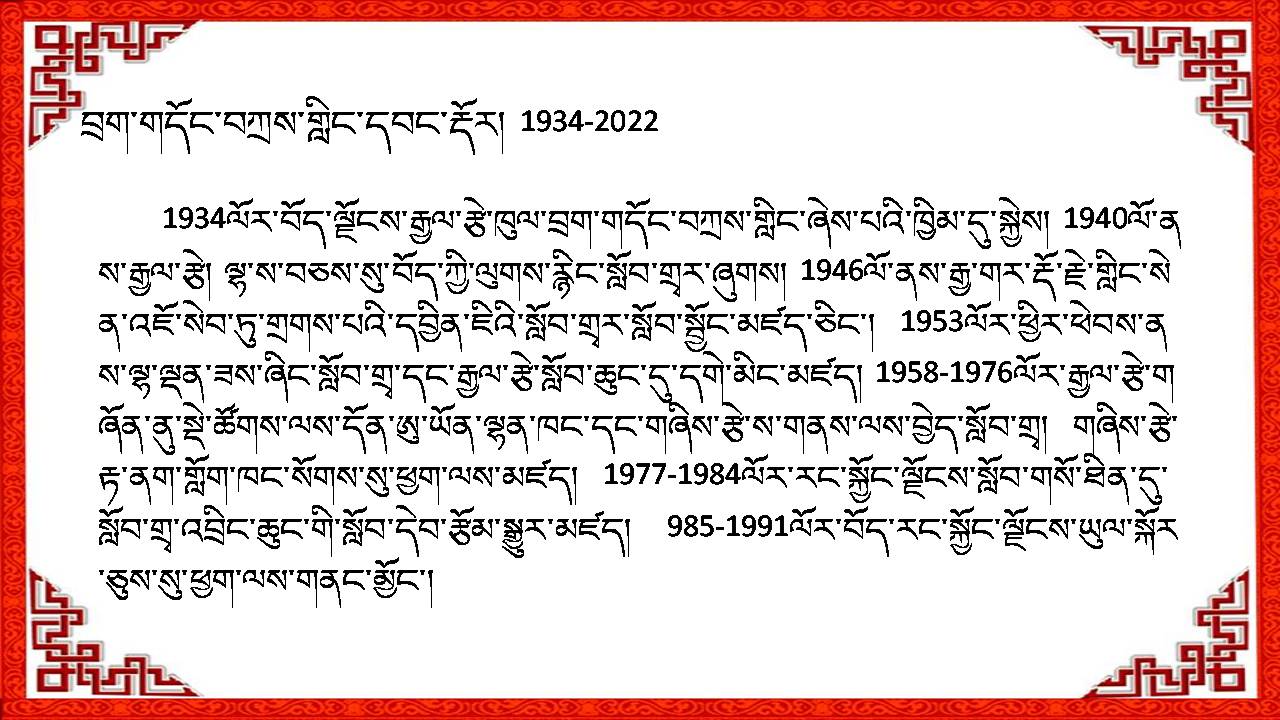 བྲག་གདོང་བཀྲས་གླིང་དབང་རྡོར། 1934-2022
1934ལོར་བོད་ལྗོངས་རྒྱལ་རྩེ་ཁུལ་བྲག་གདོང་བཀྲས་གླིང་ཞེས་པའི་ཁྱིམ་དུ་སྐྱེས། 1940ལོ་ན
ས་རྒྱལ་རྩེ། ལྷ་ས་བཅས་སུ་བོད་ཀྱི་ལུགས་རྙིང་སློབ་གྲྭར་ཞུགས། 1946ལོ་ནས་རྒྱ་གར་རྡོ་རྗེ་གླིང་སེ
ན་འཇོ་སེབ་ཏུ་གྲགས་པའི་དབྱིན་ཇིའི་སློབ་གྲྭར་སློབ་སྦྱོང་མཛད་ཅིང་། 1953ལོར་ཕྱིར་ཕེབས་ན
ས་ལྷ་ལྡན་ཟས་ཞིང་སློབ་གྲྭ་དང་རྒྱལ་རྩེ་སློབ་ཆུང་དུ་དགེ་མིང་མཛད། 1958-1976ལོར་རྒྱལ་རྩེ་ག
ཞོན་ནུ་སྡེ་ཚོགས་ལས་དོན་ཨུ་ཡོན་ལྷན་ཁང་དང་གཞིས་རྩེ་ས་གནས་ལས་བྱེད་སློབ་གྲྭ། གཞིས་རྩེ་
རྟ་ནག་གློག་ཁང་སོགས་སུ་ཕྱག་ལས་མཛད། 1977-1984ལོར་རང་སྐྱོང་ལྗོངས་སློབ་གསོ་ཐིན་དུ་
སློབ་གྲྭ་འབྲིང་ཆུང་གི་སློབ་དེབ་རྩོམ་སྒྱུར་མཛད། 985-1991ལོར་བོད་རང་སྐྱོང་ལྗོངས་ཡུལ་སྐོར
་ཅུས་སུ་ཕྱག་ལས་གནང་མྱོང་།